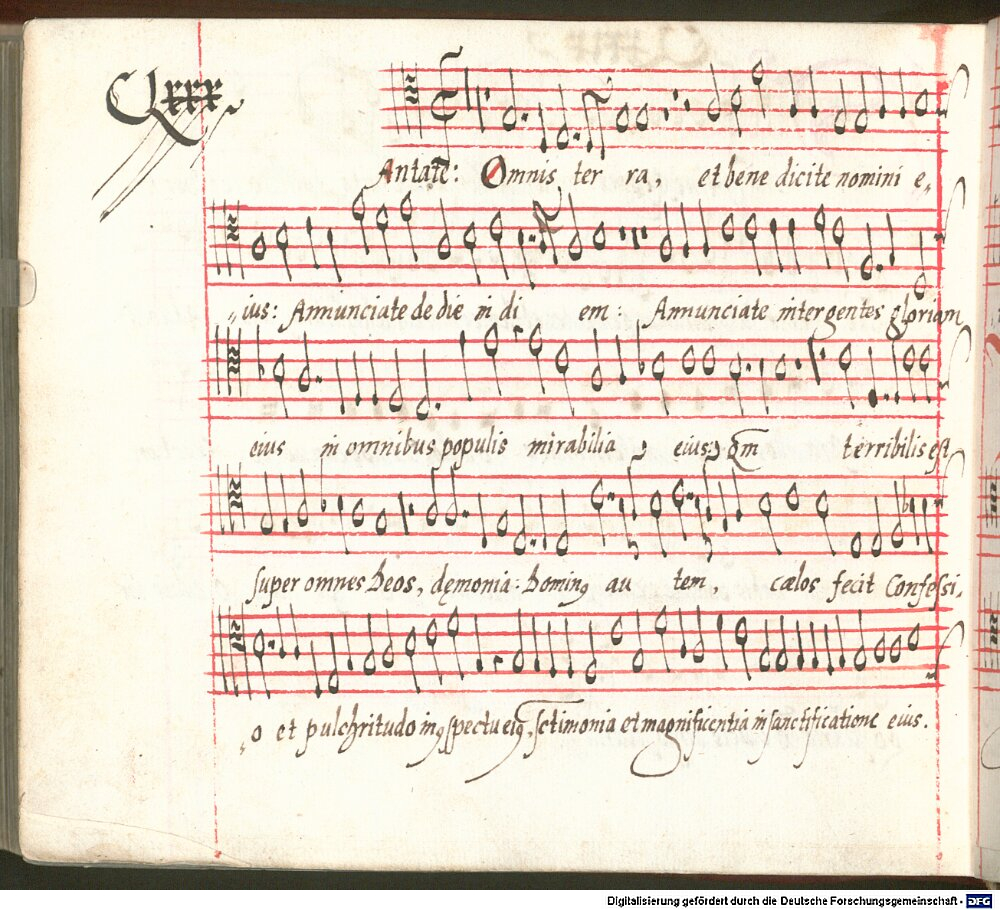 Clxxx
Antate: Omnis ter ra, et bene dicite nomini e„
„ius: Annunciate de die in di em: Annunciate inter gentes gloriam
eius in omnibus populis mirabilia, eius: qm terribilis est
super omnes Deos, dęmonia: Dominꝯ au tem, cælos fecit Confessi„
„o et pulchritudo in ꝯspectu eiꝯ, sctimonia et magnificentia in sanctificatione eius.
Digitalisierung gefördert durch die Deutsche Forschungsgemeinschaft - DFG